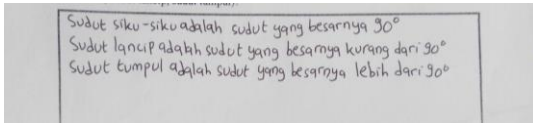 Sudut siku-siku adalah sudut yang besarnya 90°
Sudut lancip adalah sudut yang besarnya kurang dari 90°
Sudut tumpul adalah sudut yang besarnya lebih dari 90°